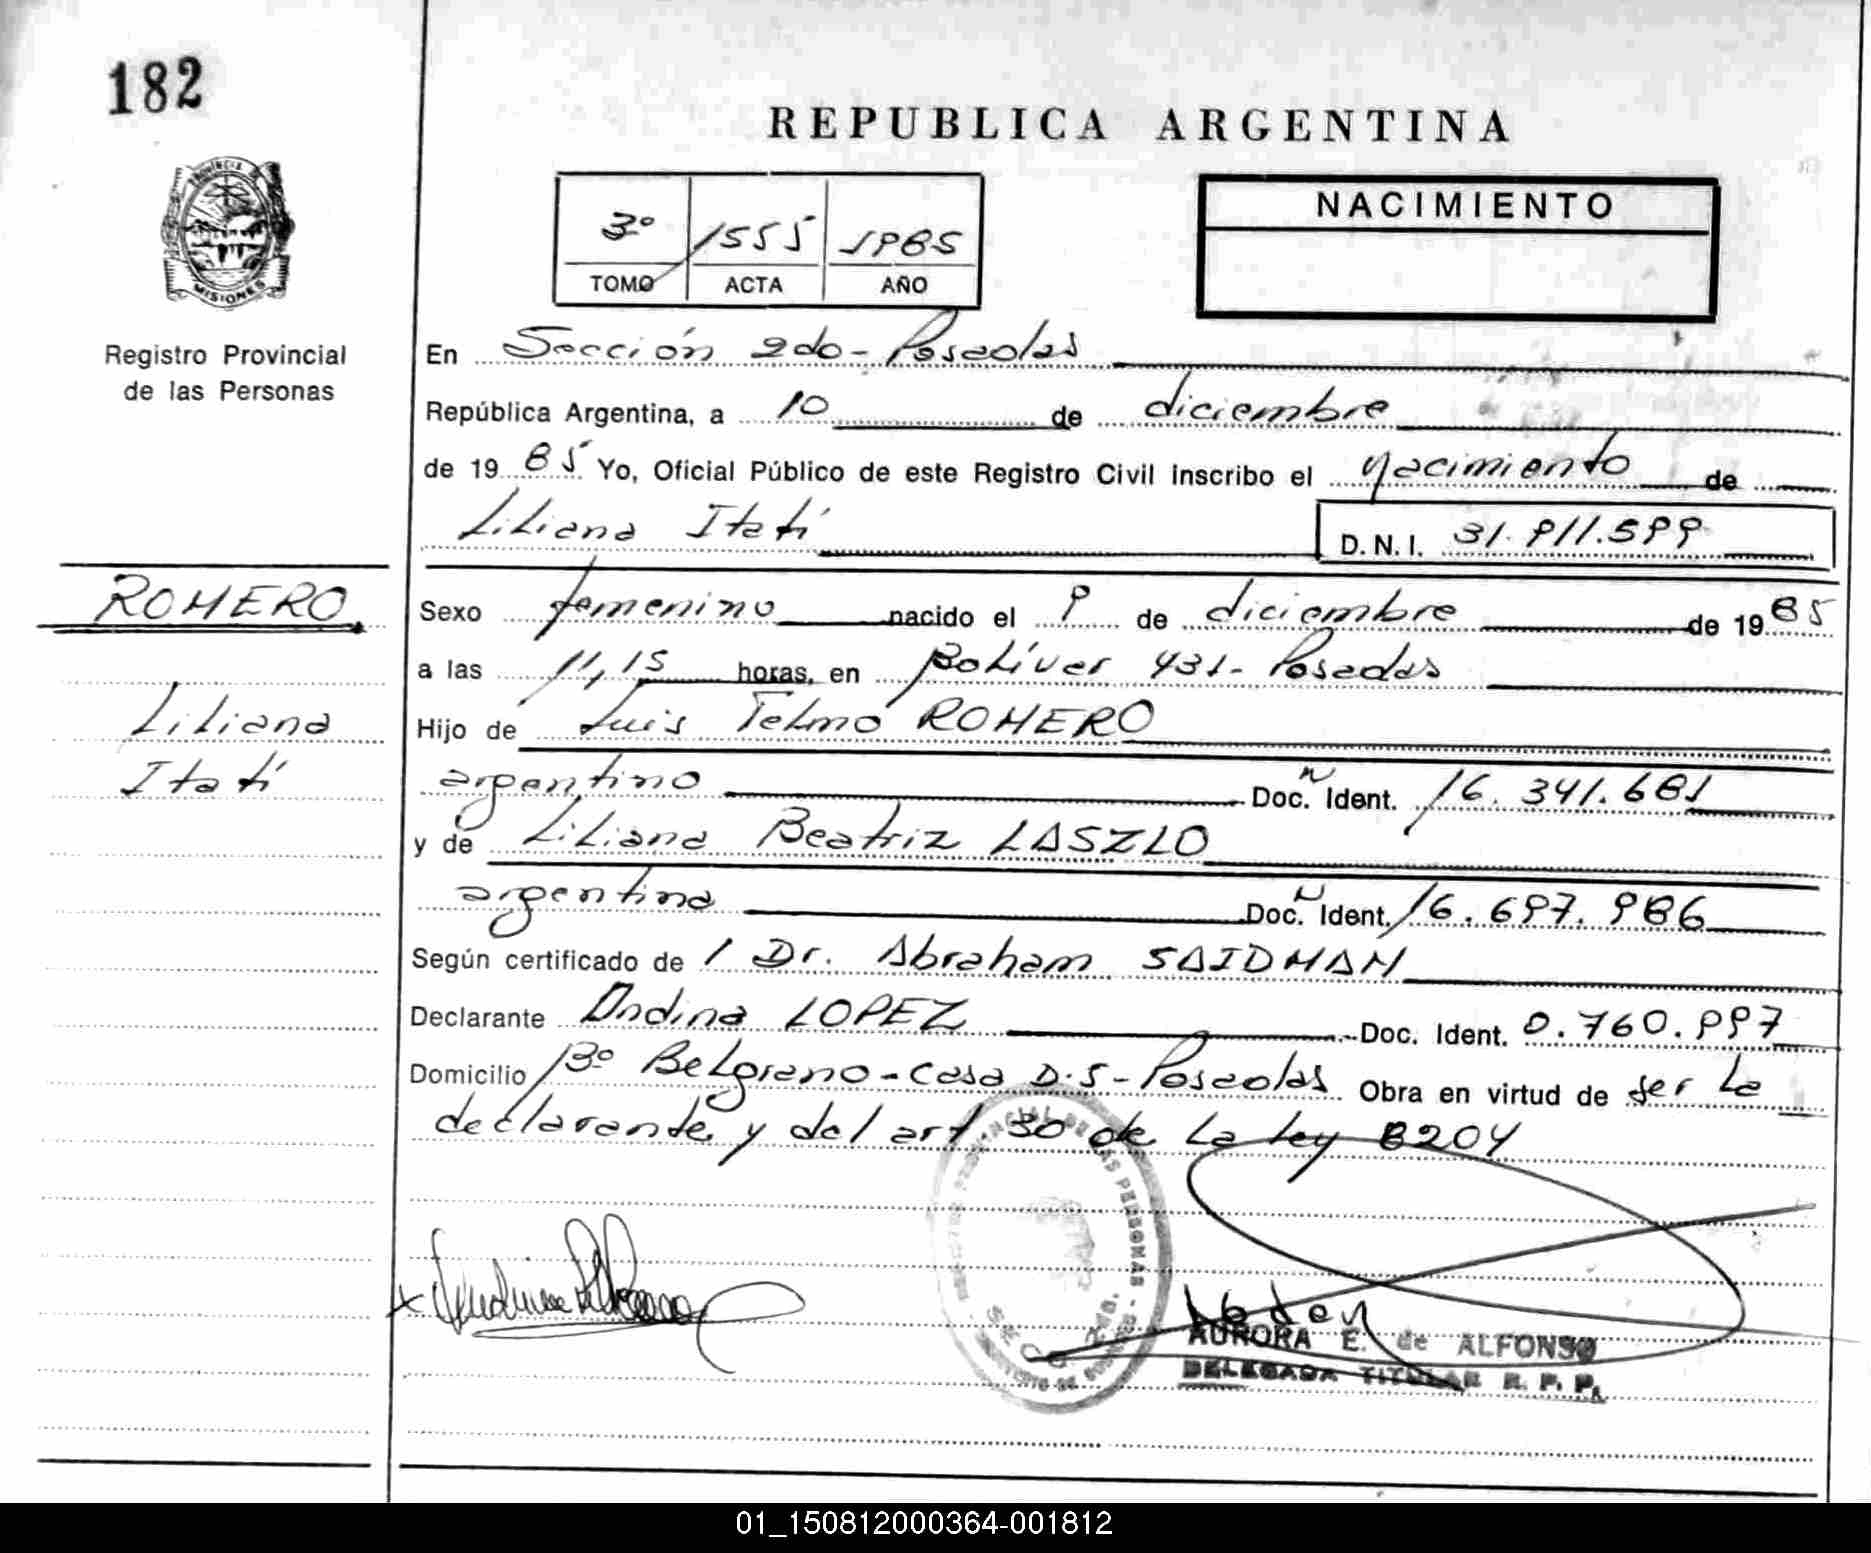 182
REPUBLICA ARGENTINA
PROVINCIA DE
MISIONES
Registro Provincial
de las Personas
3º 1555 1985
TOMO ACTA AÑO
NACIMIENTO
En Sección 2do - Posadas
República Argentina, a 10 de diciembre
de 1985 Yo, Oficial Público de este Registro Civil inscribo el nacimiento de
Liliana Itatí D.N.I. 31.911.599
ROMERO
Liliana
Itatí
Sexo femenino nacido el 9 de diciembre de 1985
a las 11,15 horas, en Bolívar 431 - Posadas
Hijo de Luis Telmo ROMERO
argentino Doc. Ident. 16.341.681
y de Liliana Beatriz LASZLO
argentina Doc. Ident. 16.697.986
Según certificado de 1 Dr. Abraham SAIDMAN
Declarante Ondina LOPEZ Doc. Ident. 0.760.997
Domicilio Bº Belgrano - Casa D.5 - Posadas Obra en virtud de ser la
declarante y del art 30 de la ley 8204
AURORA E. de ALFONSO
DELEGADA TITULAR R. P. P.
01_150812000364-001812